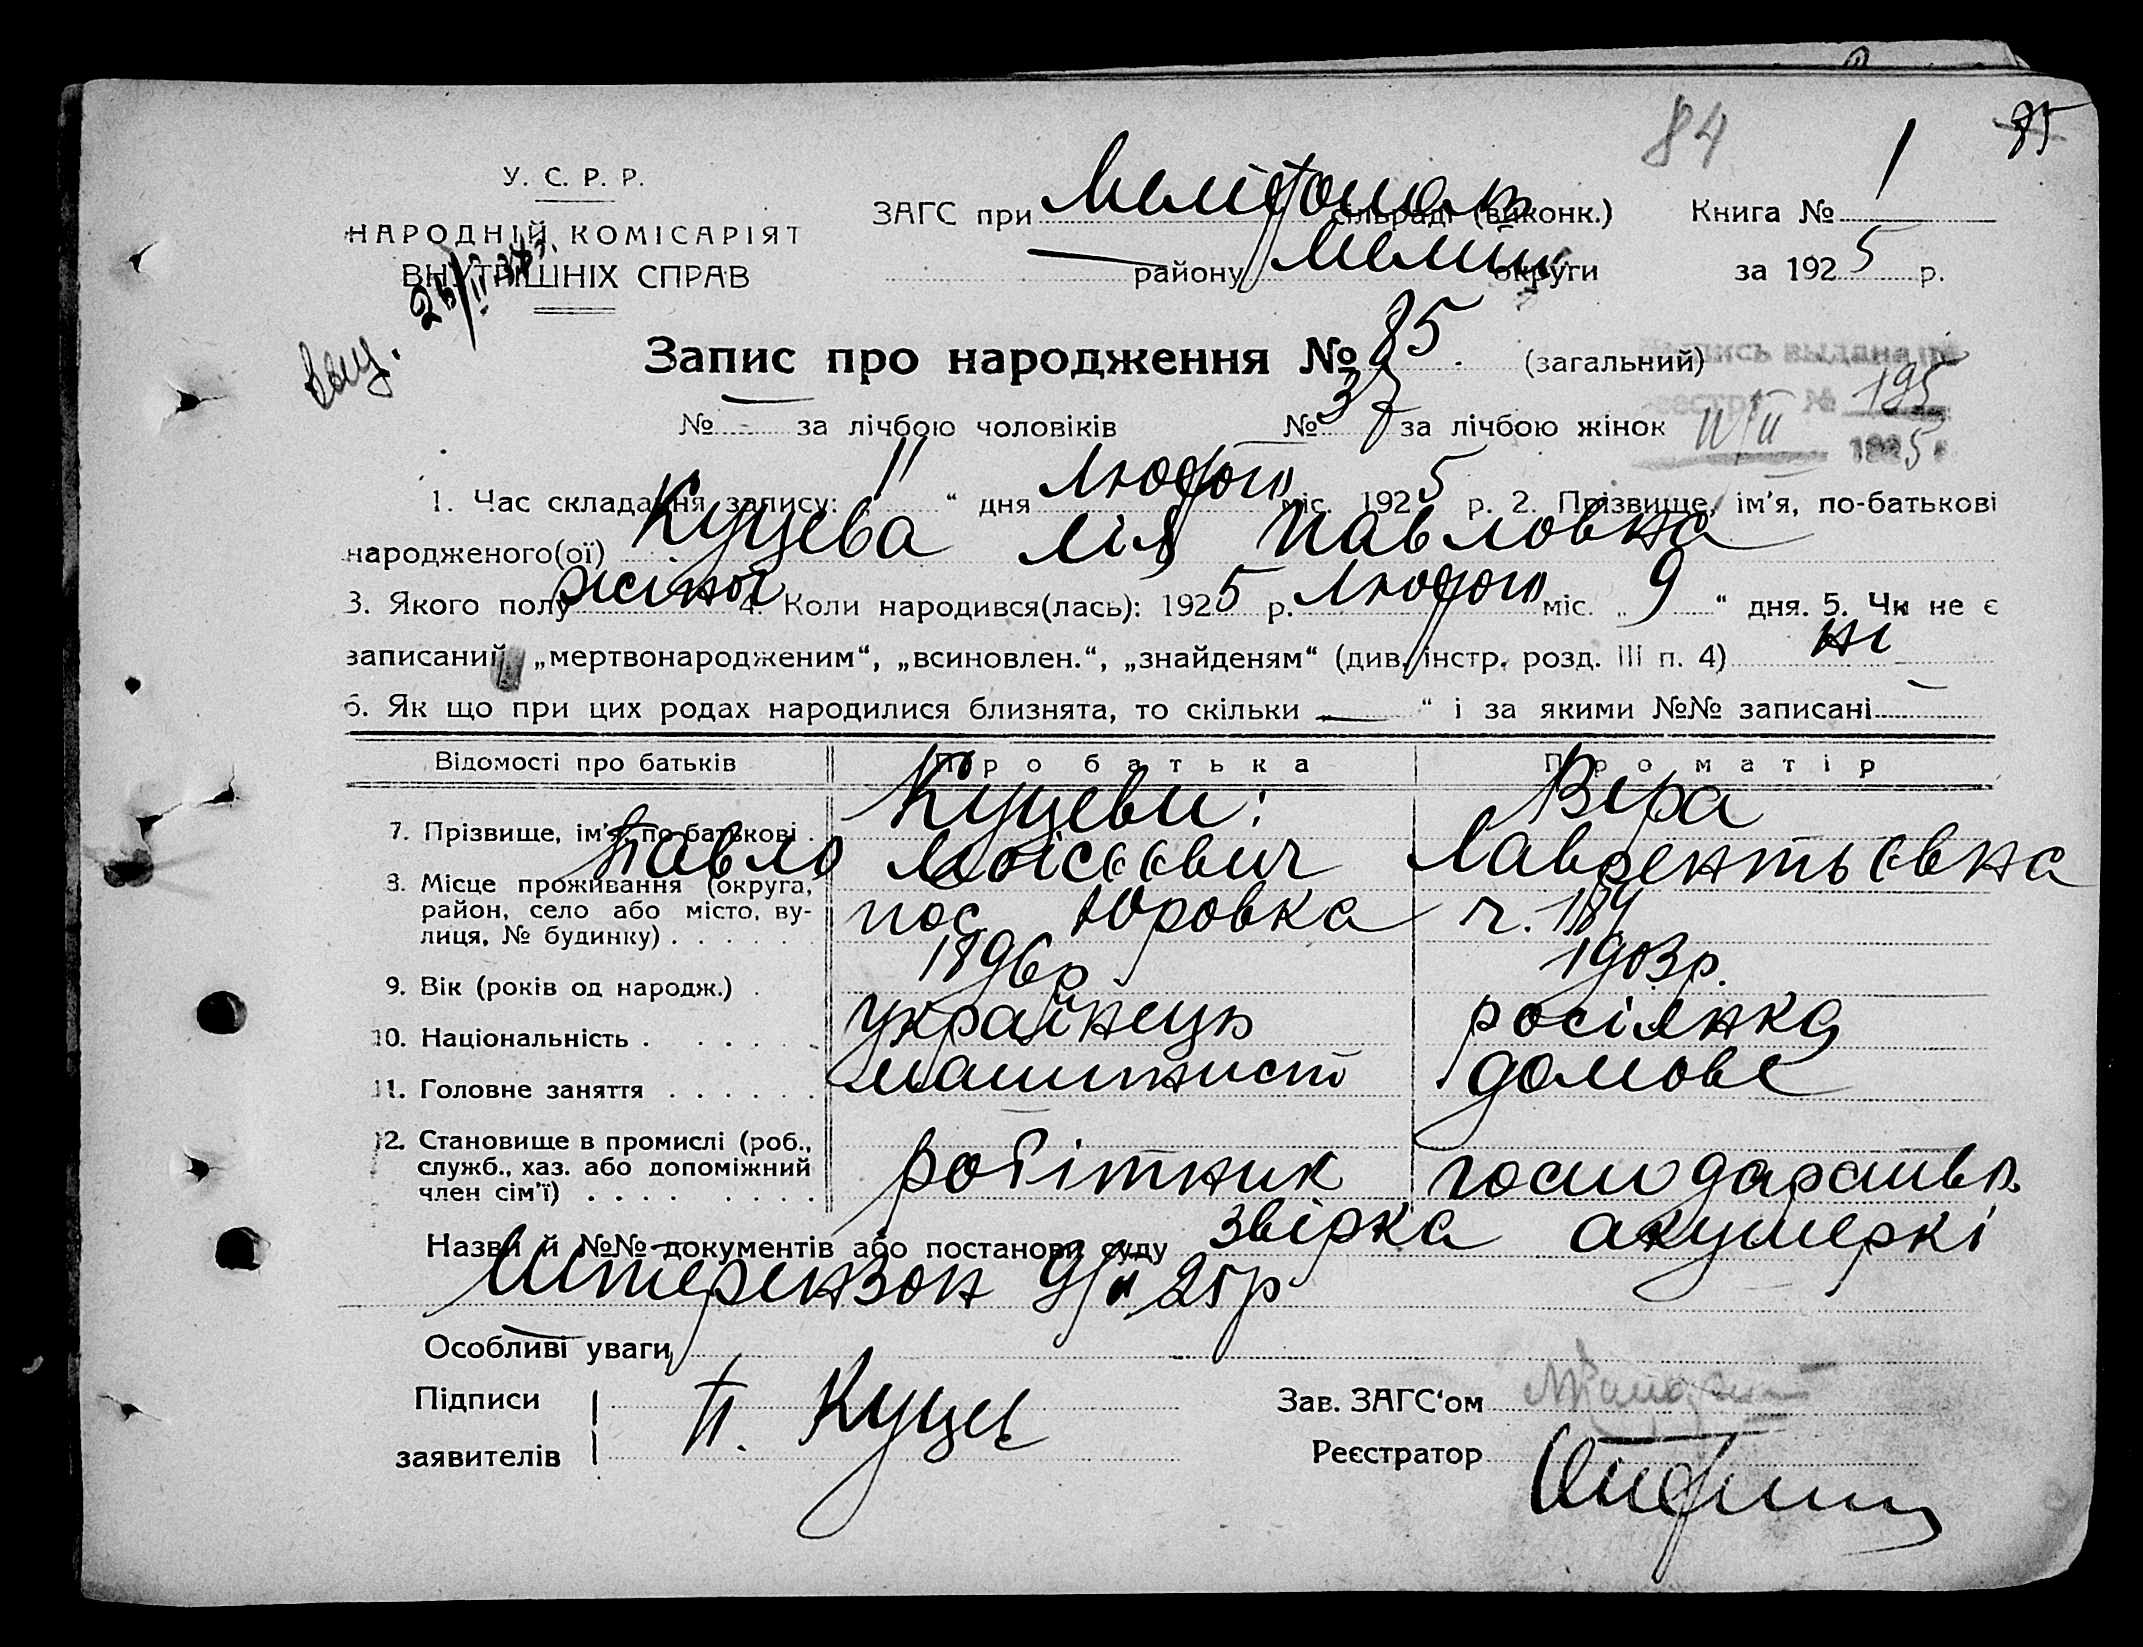 84 85
У. С. Р. Р.
НАРОДНІЙ КОМІСАРІЯТ
ВНУТРІШНІХ СПРАВ
ЗАГС при Мелітополь сільраді (виконк.) Книга № 1
— району Меліт округи за 1925 р.
выд.
Запис про народження № 85. (загальний)
выдана
№ 195
№ — за лічбою чоловіків № 37 за лічбою жінок 11/II 1925
1. Час складання запису: 11 “ дня Лютого міс. 1925 р. 2. Прізвище, ім'я, по-батькові
народженого(ої) Куцева Лія Павловна
3. Якого полу жіноч 4. Коли народився(лась): 1925 р. Лютого міс. „ 9 “ дня. 5. Чи не є
записаний „мертвонародженим“, „всиновлен.“, „знайденям“ (див. інстр. розд. III п. 4) ні
6. Як що при цих родах народилися близнята, то скільки — “ і за якими №№ записані —
Відомості про батьків Про батька Про матір
7. Прізвище, ім'я, по батькові . Куцеви: Віра
Павло Моісєєвич Лаврентьєвна
8. Місце проживання (округа,
район, село або місто, ву-
лиця, № будинку) . . . . . . пос Юровка ч. 184
9. Вік (років од народж.) . 1896р 1903р.
10. Національність . . . . . . українець росіянка
11. Головне заняття . . . . . . машиніст домове
12. Становище в промислі (роб.,
служб., хаз. або допоміжний
член сім'ї) . . . . . . . . робітник господарство
Назви й №№ документів або постанови суду звірка акушеркі
Штерензон 9/II 25р
Особливі уваги —
Підписи П. Куцев Зав. ЗАГС‘ом
заявителів Реєстратор